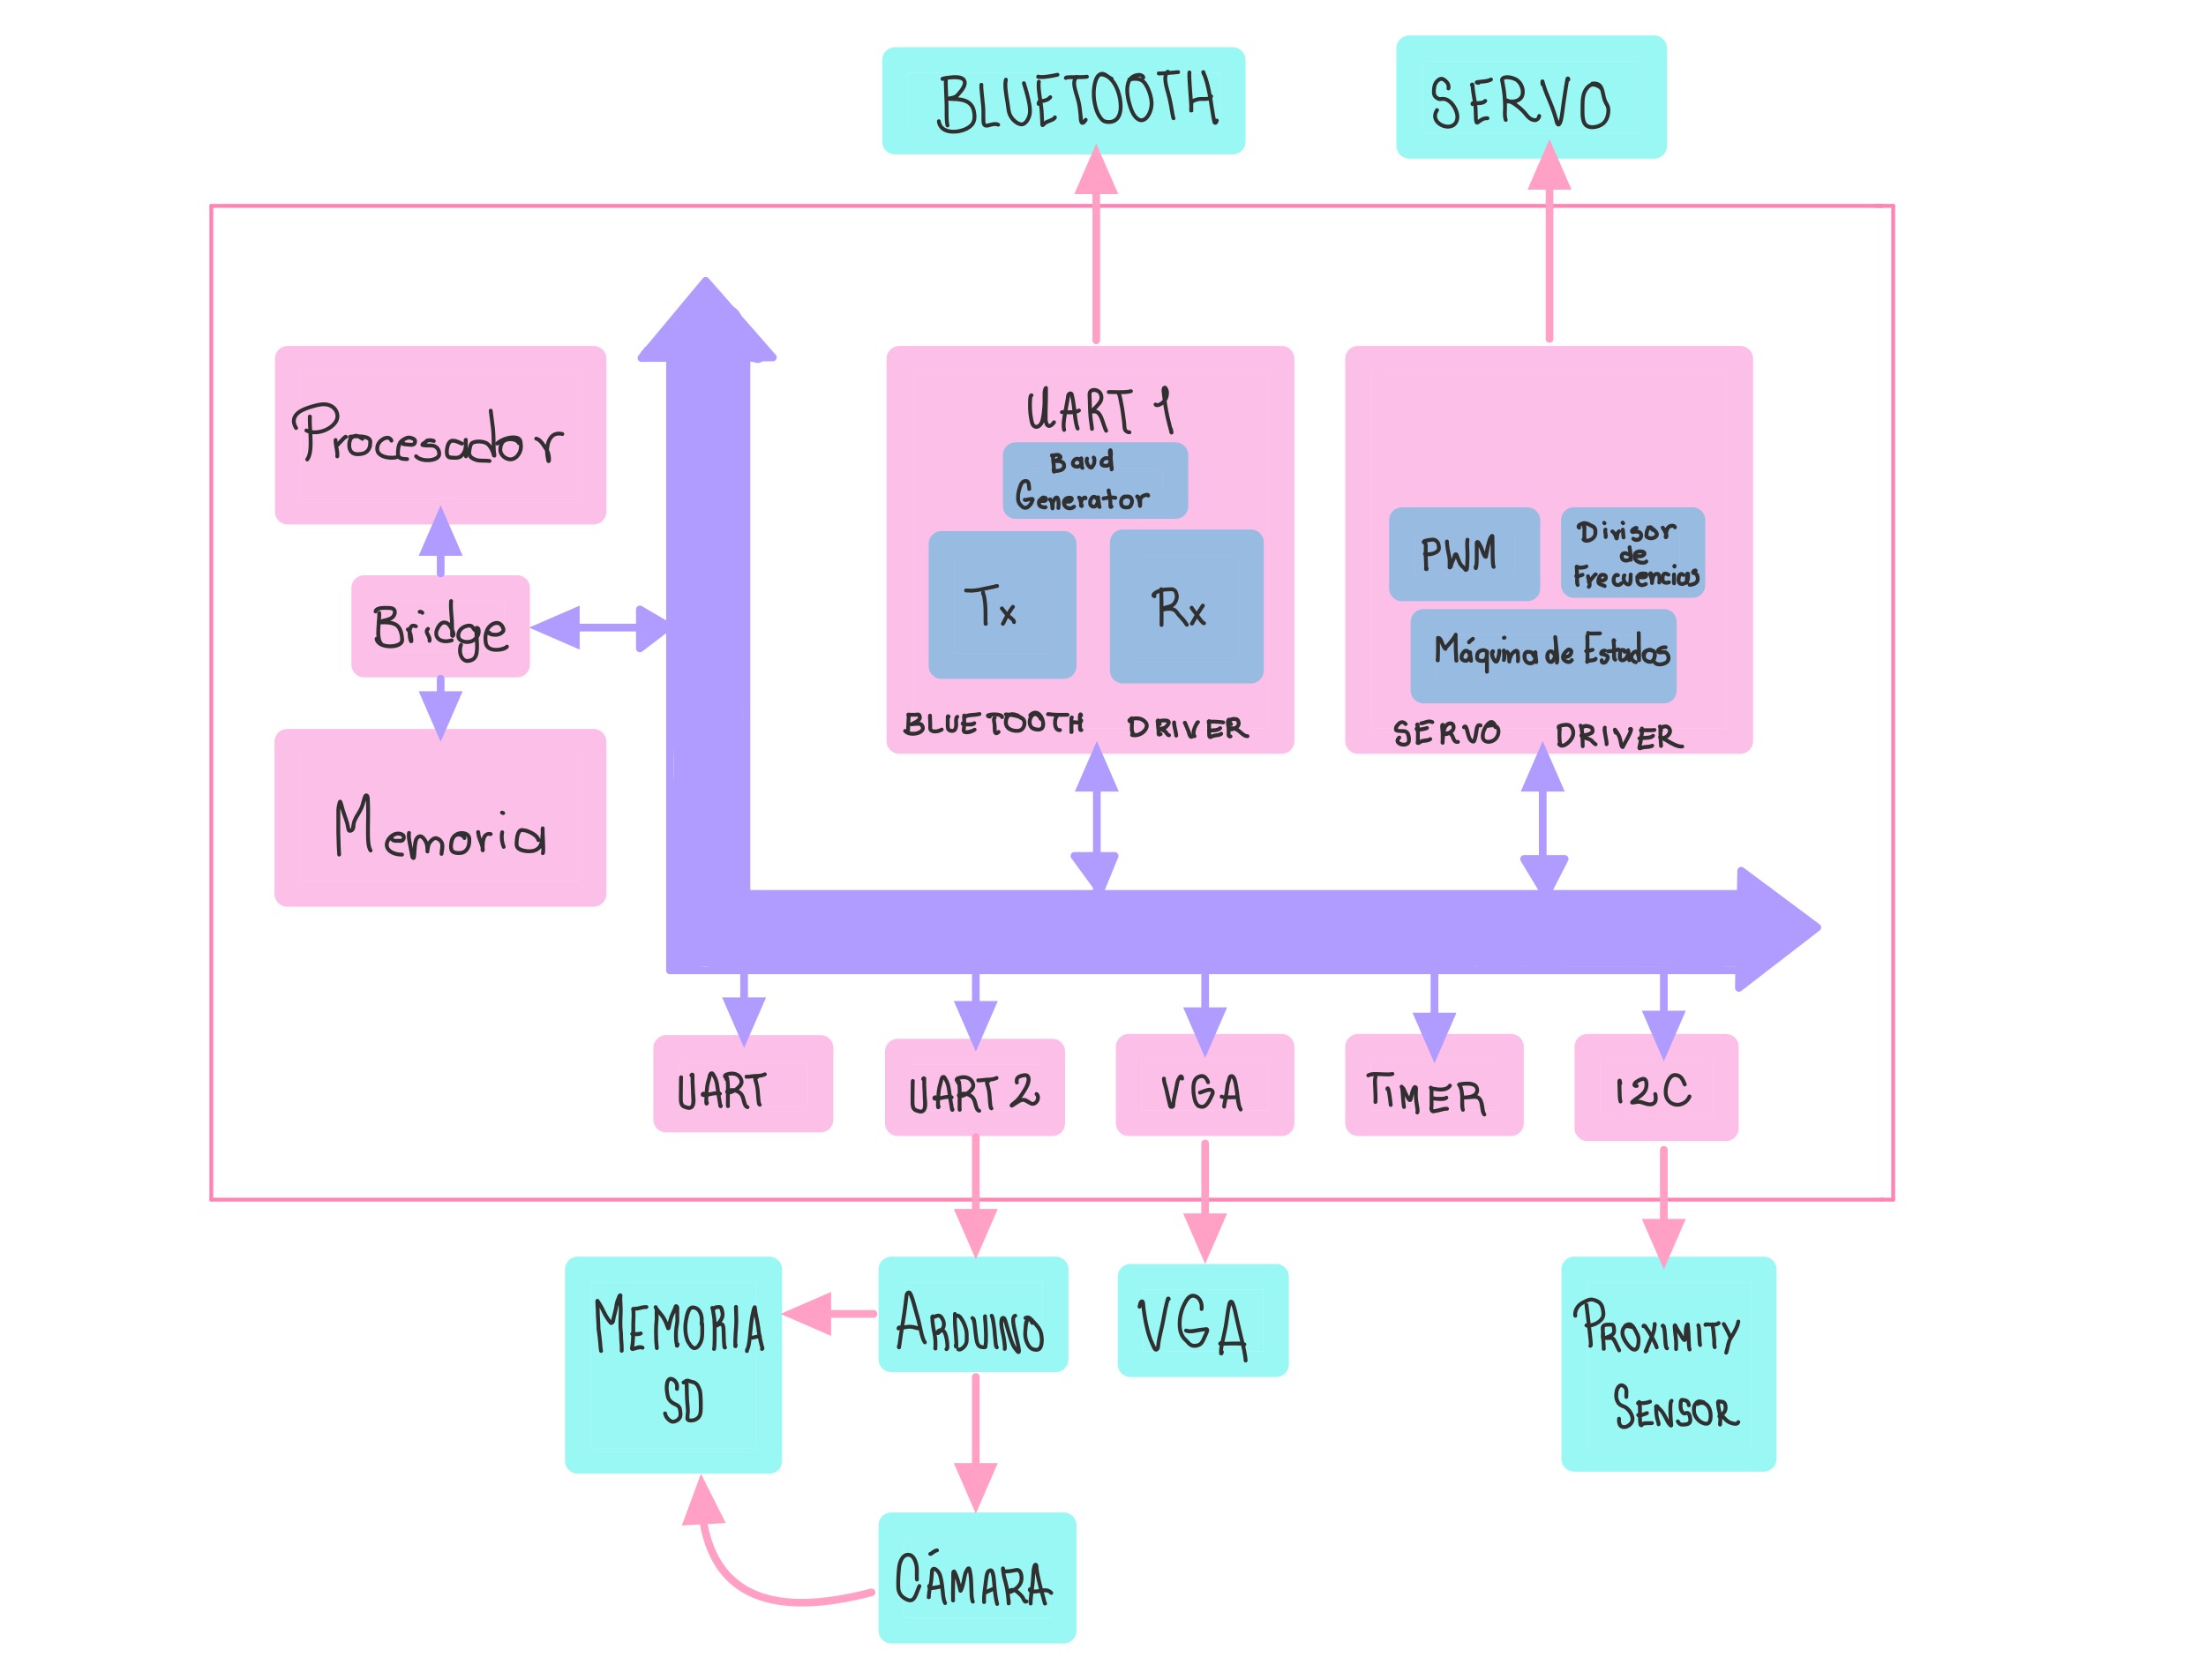 BLUETOOTH
SERVO
Procesador
Bridge
Memoria
UART 1
Baud
Generator
Tx
Rx
BLUETOOTH DRIVER
PWM
Divisor
de
Frecuencias
Máquina de Estados
SERVO DRIVER
UART
UART 2
VGA
TIMER
I2C
MEMORIA
SD
ARDUINO
VGA
PROXIMITY
SENSOR
CÁMARA